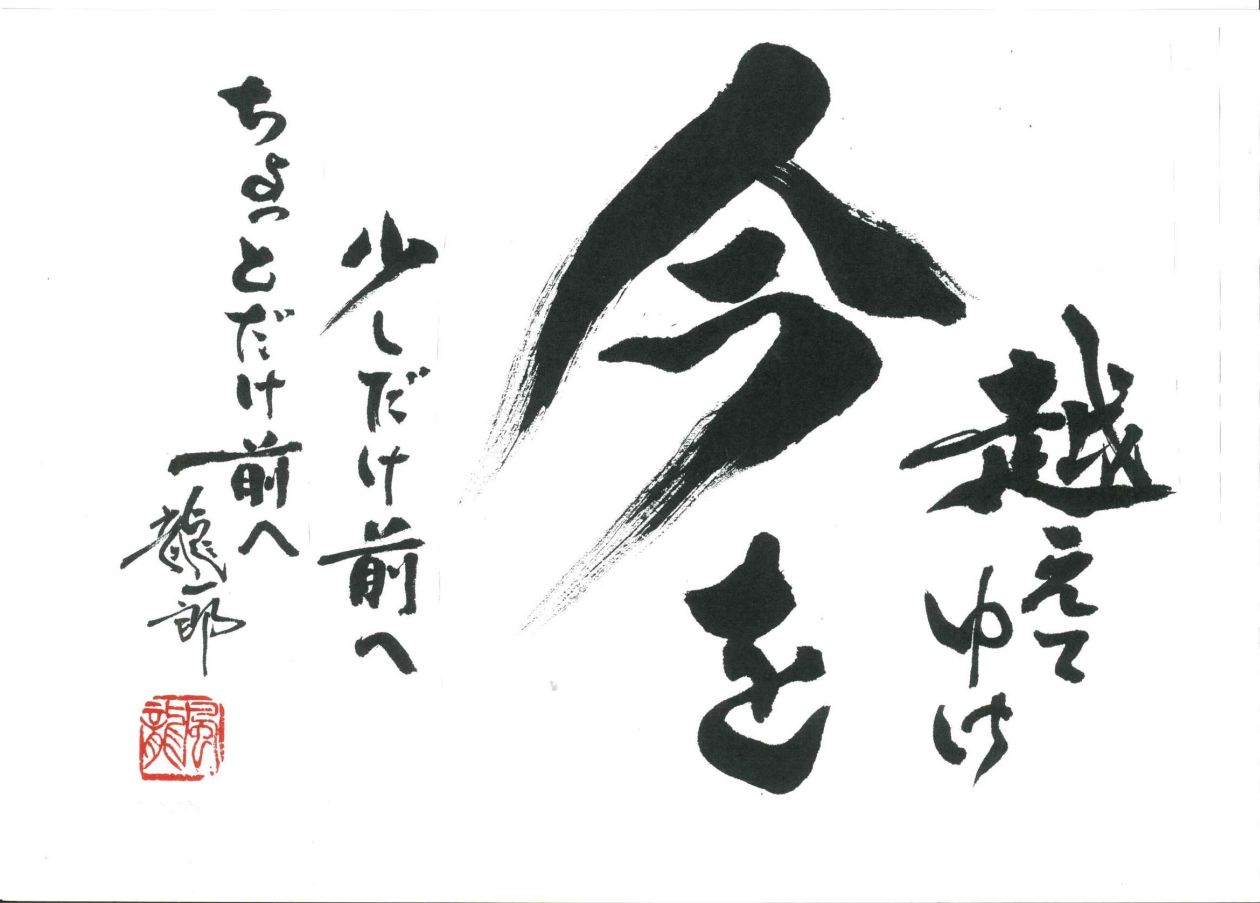 今を
越えてゆけ
少しだけ前へ
ちょっとだけ前へ
龍一郎
風龍